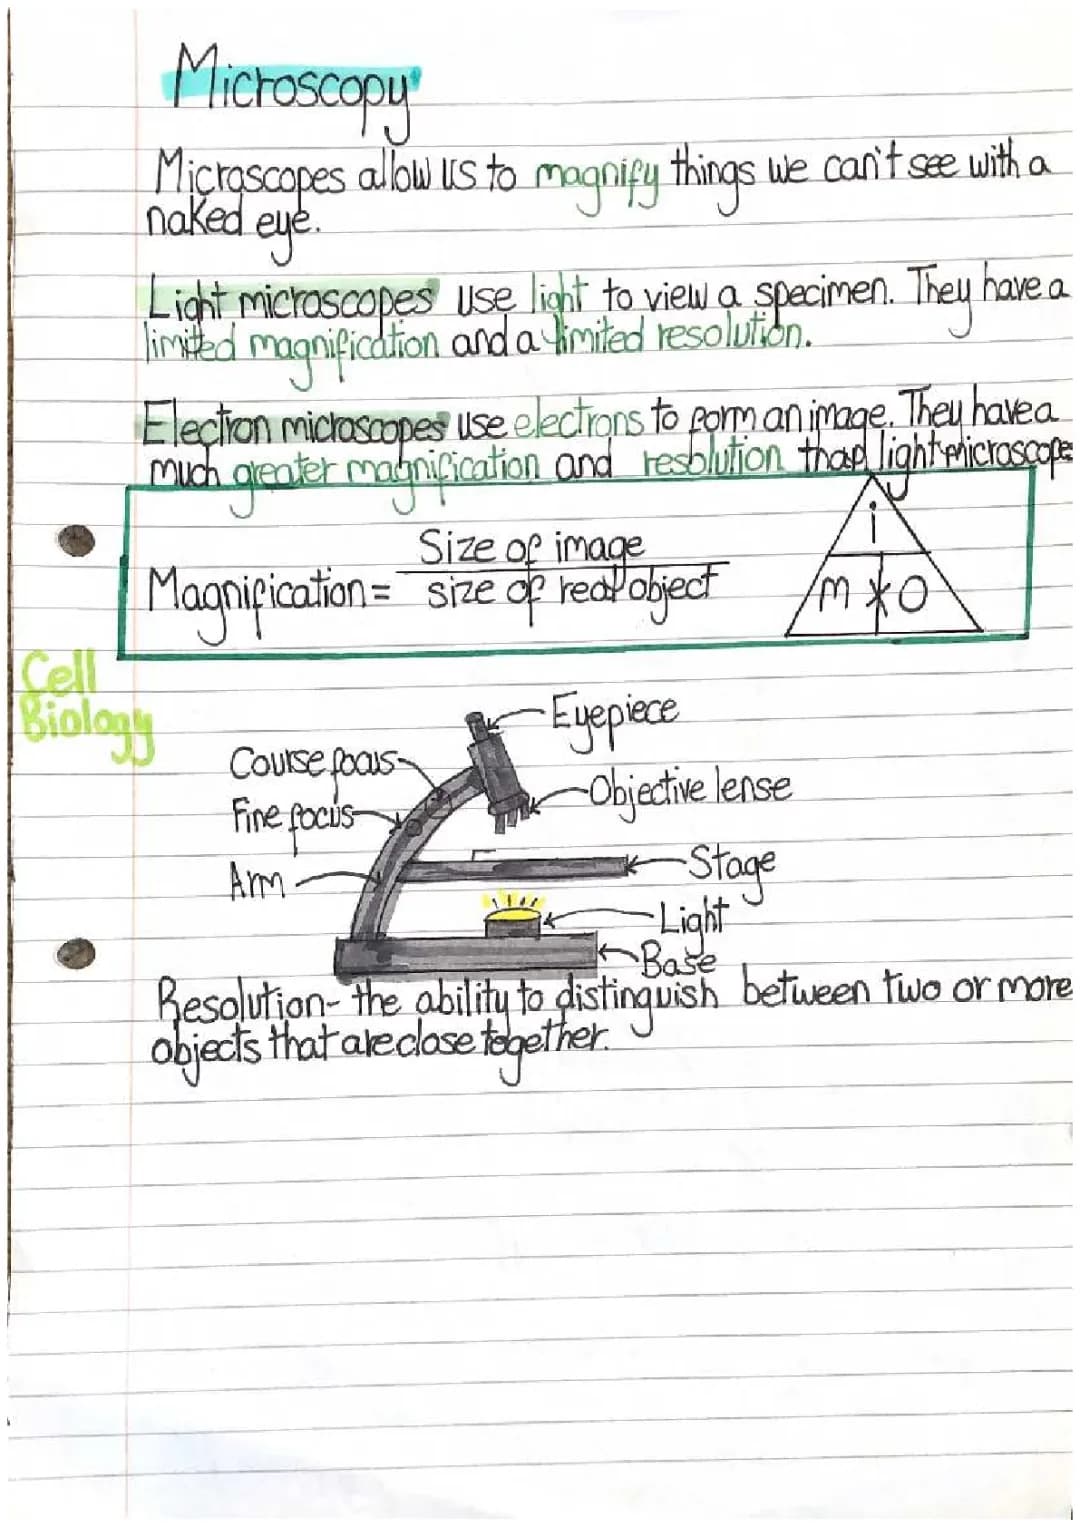 Microscopy
Microscopes allow us to magnify things we can't see with a
naked eye.
Light microscopes use light to view a specimen. They have a
limited magnification and a limited resolution.
Electron microscopes use electrons to form an image. They have a
much greater magnification and resolution than light microscopes
Size of image
Magnification = size of real object
i
m * O
Cell
Biology
Eyepiece
Course focus
Objective lense
Fine focus
Stage
Arm
Light
Base
Resolution- the ability to distinguish between two or more
objects that are close together.